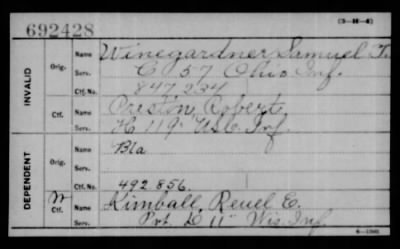 [3-H-4]
692428
INVALID
Orig.
Name Winegardner, Samuel T.
Serv. C 57 Ohio Inf.
Ctf. No. 847,234
Ctf.
Name Preston, Robert
Serv. H 119" U.S.C. Inf.
DEPENDENT
Orig.
Name Bla
Serv.
Ctf. No. 492.856.
W Ctf.
Name Kimball, Reuel E.
Serv. Pvt. K 11" Wis. Inf.